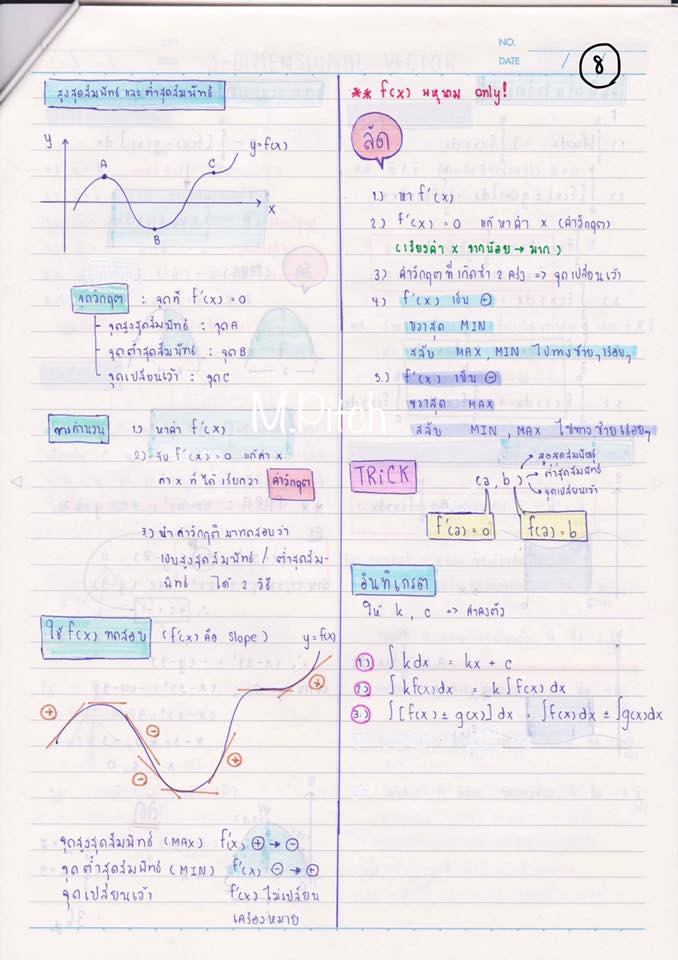 NO.
DATE / /
8
สูงสุดสัมพัทธ์ และ ต่ำสุดสัมพัทธ์
y
A
C
y=f(x)
x
B
จุดวิกฤต : จุดที่ f'(x) = 0
จุดสูงสุดสัมพัทธ์ : จุด A
จุดต่ำสุดสัมพัทธ์ : จุด B
จุดเปลี่ยนเว้า : จุด C
การคำนวน 1.) หาค่า f'(x)
2.) จับ f'(x) = 0 แก้ค่า x
ค่า x ที่ได้ เรียกว่า ค่าวิกฤต
3.) นำ ค่าวิกฤติ มาทดสอบว่า
เป็นสูงสุดสัมพัทธ์ / ต่ำสุดสัม-
พัทธ์ ได้ 2 วิธี
ใช้ f'(x) ทดสอบ (f'(x) คือ slope)
y=f(x)
+
-
-
+
+
จุดสูงสุดสัมพัทธ์ (MAX) f'(x) + → -
จุดต่ำสุดสัมพัทธ์ (MIN) f'(x) - → +
จุดเปลี่ยนเว้า f'(x) ไม่เปลี่ยน
เครื่องหมาย
** f(x) พหุนาม only!
ลัด
1.) หา f'(x)
2.) f'(x) = 0 แก้หาค่า x (ค่าวิกฤต)
(เรียงค่า x จากน้อย → มาก)
3) ค่าวิกฤตที่เกิดซ้ำ 2 ครั้ง => จุดเปลี่ยนเว้า
4) f'(x) เป็น
ขวาสุด MIN
สลับ MAX, MIN ไปทางซ้ายๆเรื่อยๆ
5.) f'(x) เป็น ⊖
ขวาสุด MAX
สลับ MIN, MAX ไปทางซ้ายเรื่อยๆ
TRiCK
(a, b)
สูงสุดสัมพัทธ์
ต่ำสุดสัมพัทธ์
จุดเปลี่ยนเว้า
f'(a) = 0
f(a) = b
อินทิเกรต
ให้ k, c => ค่าคงตัว
1.) ∫kdx = kx + c
2.) ∫kf(x)dx = k∫f(x)dx
3.) ∫[f(x) ± g(x)]dx = ∫f(x)dx ± ∫g(x)dx
M.Pitch